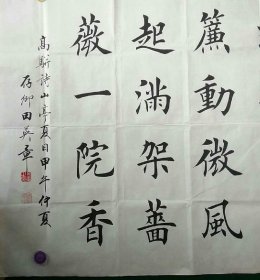 簾動微風
起滿架薔
薇一院香
高駢詩山亭夏日甲午仲夏
存卿田英章